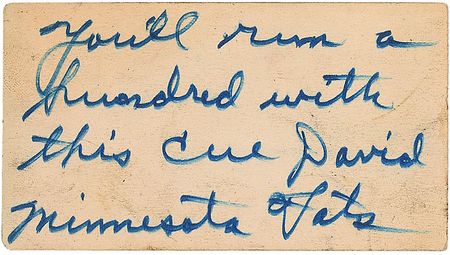 You'll run a
hundred with
this cue David
Minnesota Fats